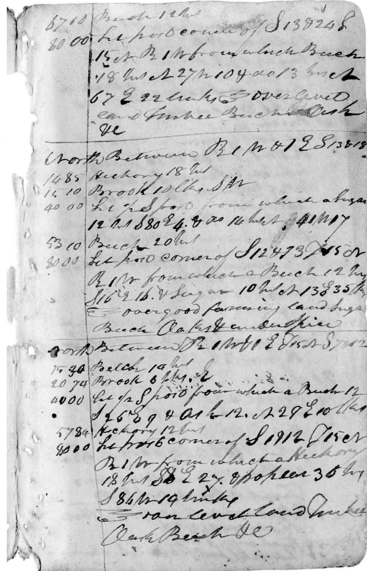 6710 Beech 12 ins
80 00 Set post corner of S 13 & 24 T
15 N R 1 W from which Beech
18 ins N 27 W 10 & do 13 ins N
67 E 22 links over level
land timber Beech Ash
&c
North Between R 1 W & 1 E S 13 & 18
1485 Hickory 18 ins
1510 Brook 10 lks SW
40 00 Set 1/4 S post from which a Sugar
12 ins S 80 E 4 & do 14 ins N 41 W 17
5310 Beech 20 ins
8000 Set post corner of S 12 & 13 T 15 N
R 1 W from which a Beech 12 ins
S 16 E 16 & Sugar 10 ins N 13 E 35 lks
over good farming land Sugar
Beech Oak & under Spice
North Between R 1 W & 1 E T 15 N S 7 & 12
Beech 14 ins
2074 Brook 6 lks
4000 Set 1/4 S post from which a Beech 12
S 26 E 9 & Ash 12 N 29 E 10 lks
5784 Hickory 12 ins
8000 Set post corner of S 1 & 12 T 15 N
R 1 W from which a Hickory
18 ins E 27 & poplar 30 ins
S 86 W 19 links
over level land Timber
Oak Beech &c